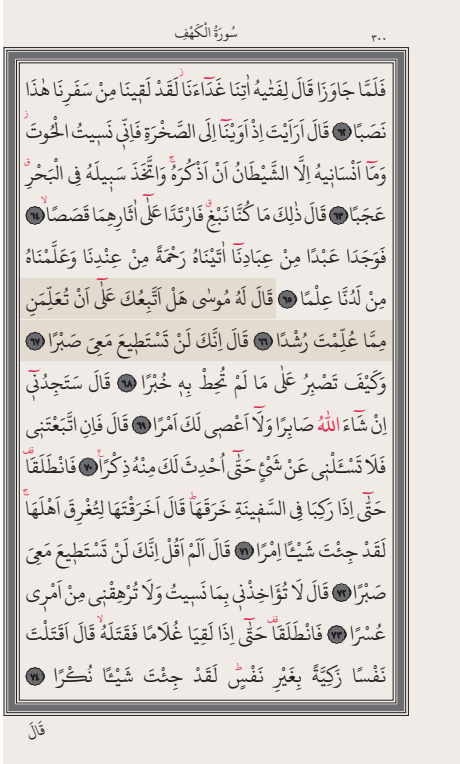 سُورَةُ الْكَهْفِ
٣٠٠
فَلَمَّا جَاوَزَا قَالَ لِفَتٰيهُ اٰتِنَا غَدَٓاءَنَاۘ لَقَدْ لَقٖينَا مِنْ سَفَرِنَا هٰذَا
نَصَبًا ﴿٦٢﴾ قَالَ اَرَاَيْتَ اِذْ اَوَيْنَٓا اِلَى الصَّخْرَةِ فَاِنّٖي نَسٖيتُ الْحُوتَۘ
وَمَٓا اَنْسَانٖيهُ اِلَّا الشَّيْطَانُ اَنْ اَذْكُرَهُۚ وَاتَّخَذَ سَبٖيلَهُ فِي الْبَحْرِۗ
عَجَبًا ﴿٦٣﴾ قَالَ ذٰلِكَ مَا كُنَّا نَبْغِۗ فَارْتَدَّا عَلٰٓى اٰثَارِهِمَا قَصَصًاۙ ﴿٦٤﴾
فَوَجَدَا عَبْدًا مِنْ عِبَادِنَٓا اٰتَيْنَاهُ رَحْمَةً مِنْ عِنْدِنَا وَعَلَّمْنَاهُ
مِنْ لَدُنَّا عِلْمًا ﴿٦٥﴾ قَالَ لَهُ مُوسٰى هَلْ اَتَّبِعُكَ عَلٰٓى اَنْ تُعَلِّمَنِ
مِمَّا عُلِّمْتَ رُشْدًا ﴿٦٦﴾ قَالَ اِنَّكَ لَنْ تَسْتَطٖيعَ مَعِيَ صَبْرًا ﴿٦٧﴾
وَكَيْفَ تَصْبِرُ عَلٰى مَا لَمْ تُحِطْ بِهٖ خُبْرًا ﴿٦٨﴾ قَالَ سَتَجِدُنٖٓي
اِنْ شَٓاءَ اللّٰهُ صَابِرًا وَلَٓا اَعْصٖي لَكَ اَمْرًا ﴿٦٩﴾ قَالَ فَاِنِ اتَّبَعْتَنٖي
فَلَا تَسْـَٔلْنٖي عَنْ شَيْءٍ حَتّٰٓى اُحْدِثَ لَكَ مِنْهُ ذِكْرًاࣖ ﴿٧٠﴾ فَانْطَلَقَا۠
حَتّٰٓى اِذَا رَكِبَا فِي السَّفٖينَةِ خَرَقَهَاۜ قَالَ اَخَرَقْتَهَا لِتُغْرِقَ اَهْلَهَاۚ
لَقَدْ جِئْتَ شَيْـًٔا اِمْرًا ﴿٧١﴾ قَالَ اَلَمْ اَقُلْ اِنَّكَ لَنْ تَسْتَطٖيعَ مَعِيَ
صَبْرًا ﴿٧٢﴾ قَالَ لَا تُؤَاخِذْنٖي بِمَا نَسٖيتُ وَلَا تُرْهِقْنٖي مِنْ اَمْرٖي
عُسْرًا ﴿٧٣﴾ فَانْطَلَقَا۠ حَتّٰٓى اِذَا لَقِيَا غُلَامًا فَقَتَلَهُۙ قَالَ اَقَتَلْتَ
نَفْسًا زَكِيَّةً بِغَيْرِ نَفْسٍۜ لَقَدْ جِئْتَ شَيْـًٔا نُكْرًا ﴿٧٤﴾
قَالَ